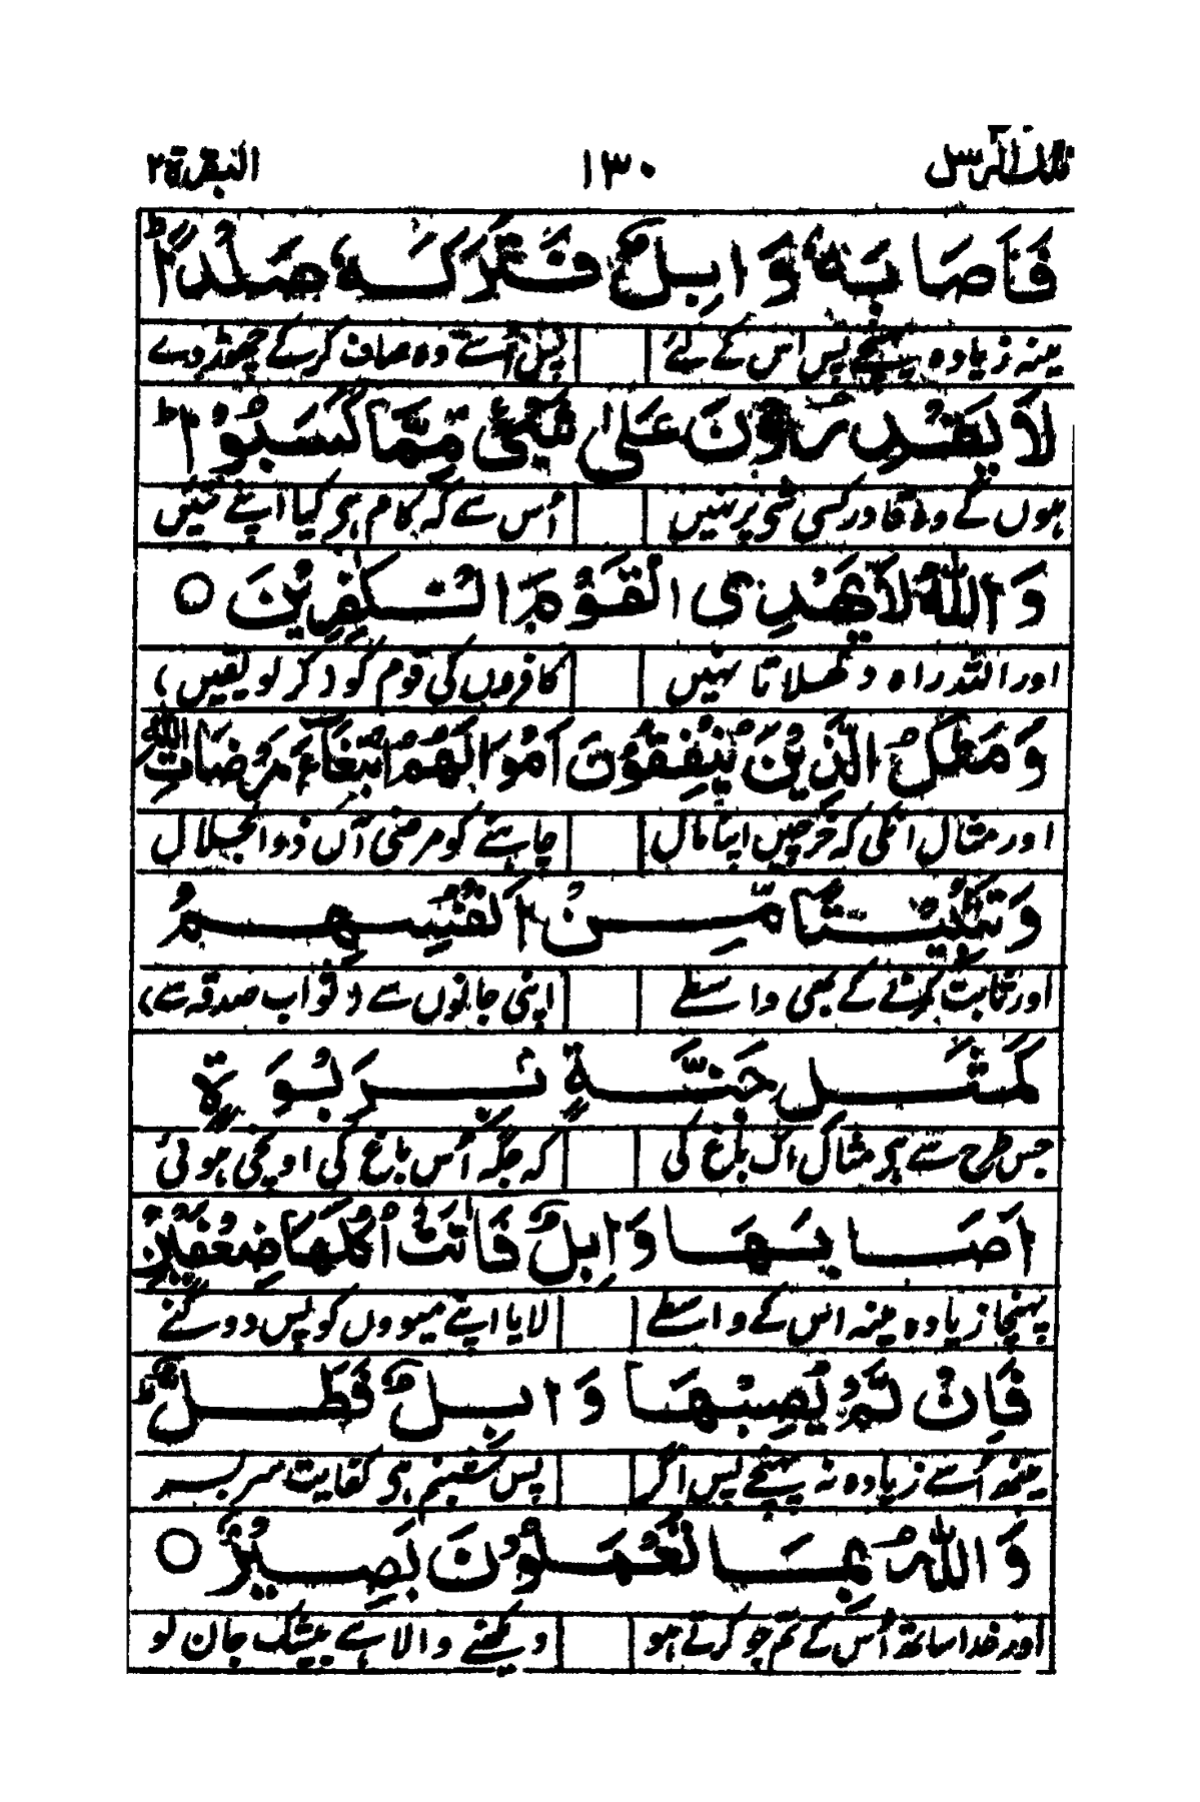 تلك الرسل ١٣٠ البقرة ٢
فَاَصَابَهٗ وَابِلٌ فَتَرَكَهٗ صَلْدًا ؕ
مینہ زیادہ پہنچے پس اس کے لئے پس اُسے وہ صاف کرکے چھوڑ دے
لَا یَقْدِرُوْنَ عَلٰی شَیْءٍ مِّمَّا کَسَبُوْا ؕ
ہوں گے وہ قادر کسی شی پر نہیں اُس سے کہ کام ہر کیا اپنے تئیں
وَاللّٰهُ لَا یَهْدِی الْقَوْمَ الْکٰفِرِیْنَ ○
اور اللہ راہ دکھلاتا نہیں کافروں کی قوم کو (کر لو یقیں)
وَمَثَلُ الَّذِیْنَ یُنْفِقُوْنَ اَمْوَالَهُمُ ابْتِغَآءَ مَرْضَاتِ اللّٰهِ
اور مثال انکی کہ خرچیں اپنا مال چاہنے کو مرضی آں ذوالجلال
وَتَثْبِیْتًا مِّنْ اَنْفُسِهِمْ
اور ثابت کرنے کے بھی واسطے اپنی جانوں سے (ثواب صدقہ سے)
کَمَثَلِ جَنَّةٍ بِرَبْوَةٍ
جس طرح سے ہر مثال اک باغ کی کہ جگہ اُس باغ کی اونچی ہوئی
اَصَابَهَا وَابِلٌ فَاٰتَتْ اُکُلَهَا ضِعْفَیْنِ
پہنچا زیادہ مینہ اس کے واسطے لایا اپنے میووں کو پس دو گنے
فَاِنْ لَّمْ یُصِبْهَا وَابِلٌ فَطَلٌّ ؕ
مینھ اُسے زیادہ نہ پہنچے پس اگر پس شبنم ہر کفایت سربسر
وَاللّٰهُ بِمَا تَعْمَلُوْنَ بَصِیْرٌ ○
اور خدا ساتھ اُس کے تم جو کرتے ہو دیکھنے والا ہے بیشک جان لو